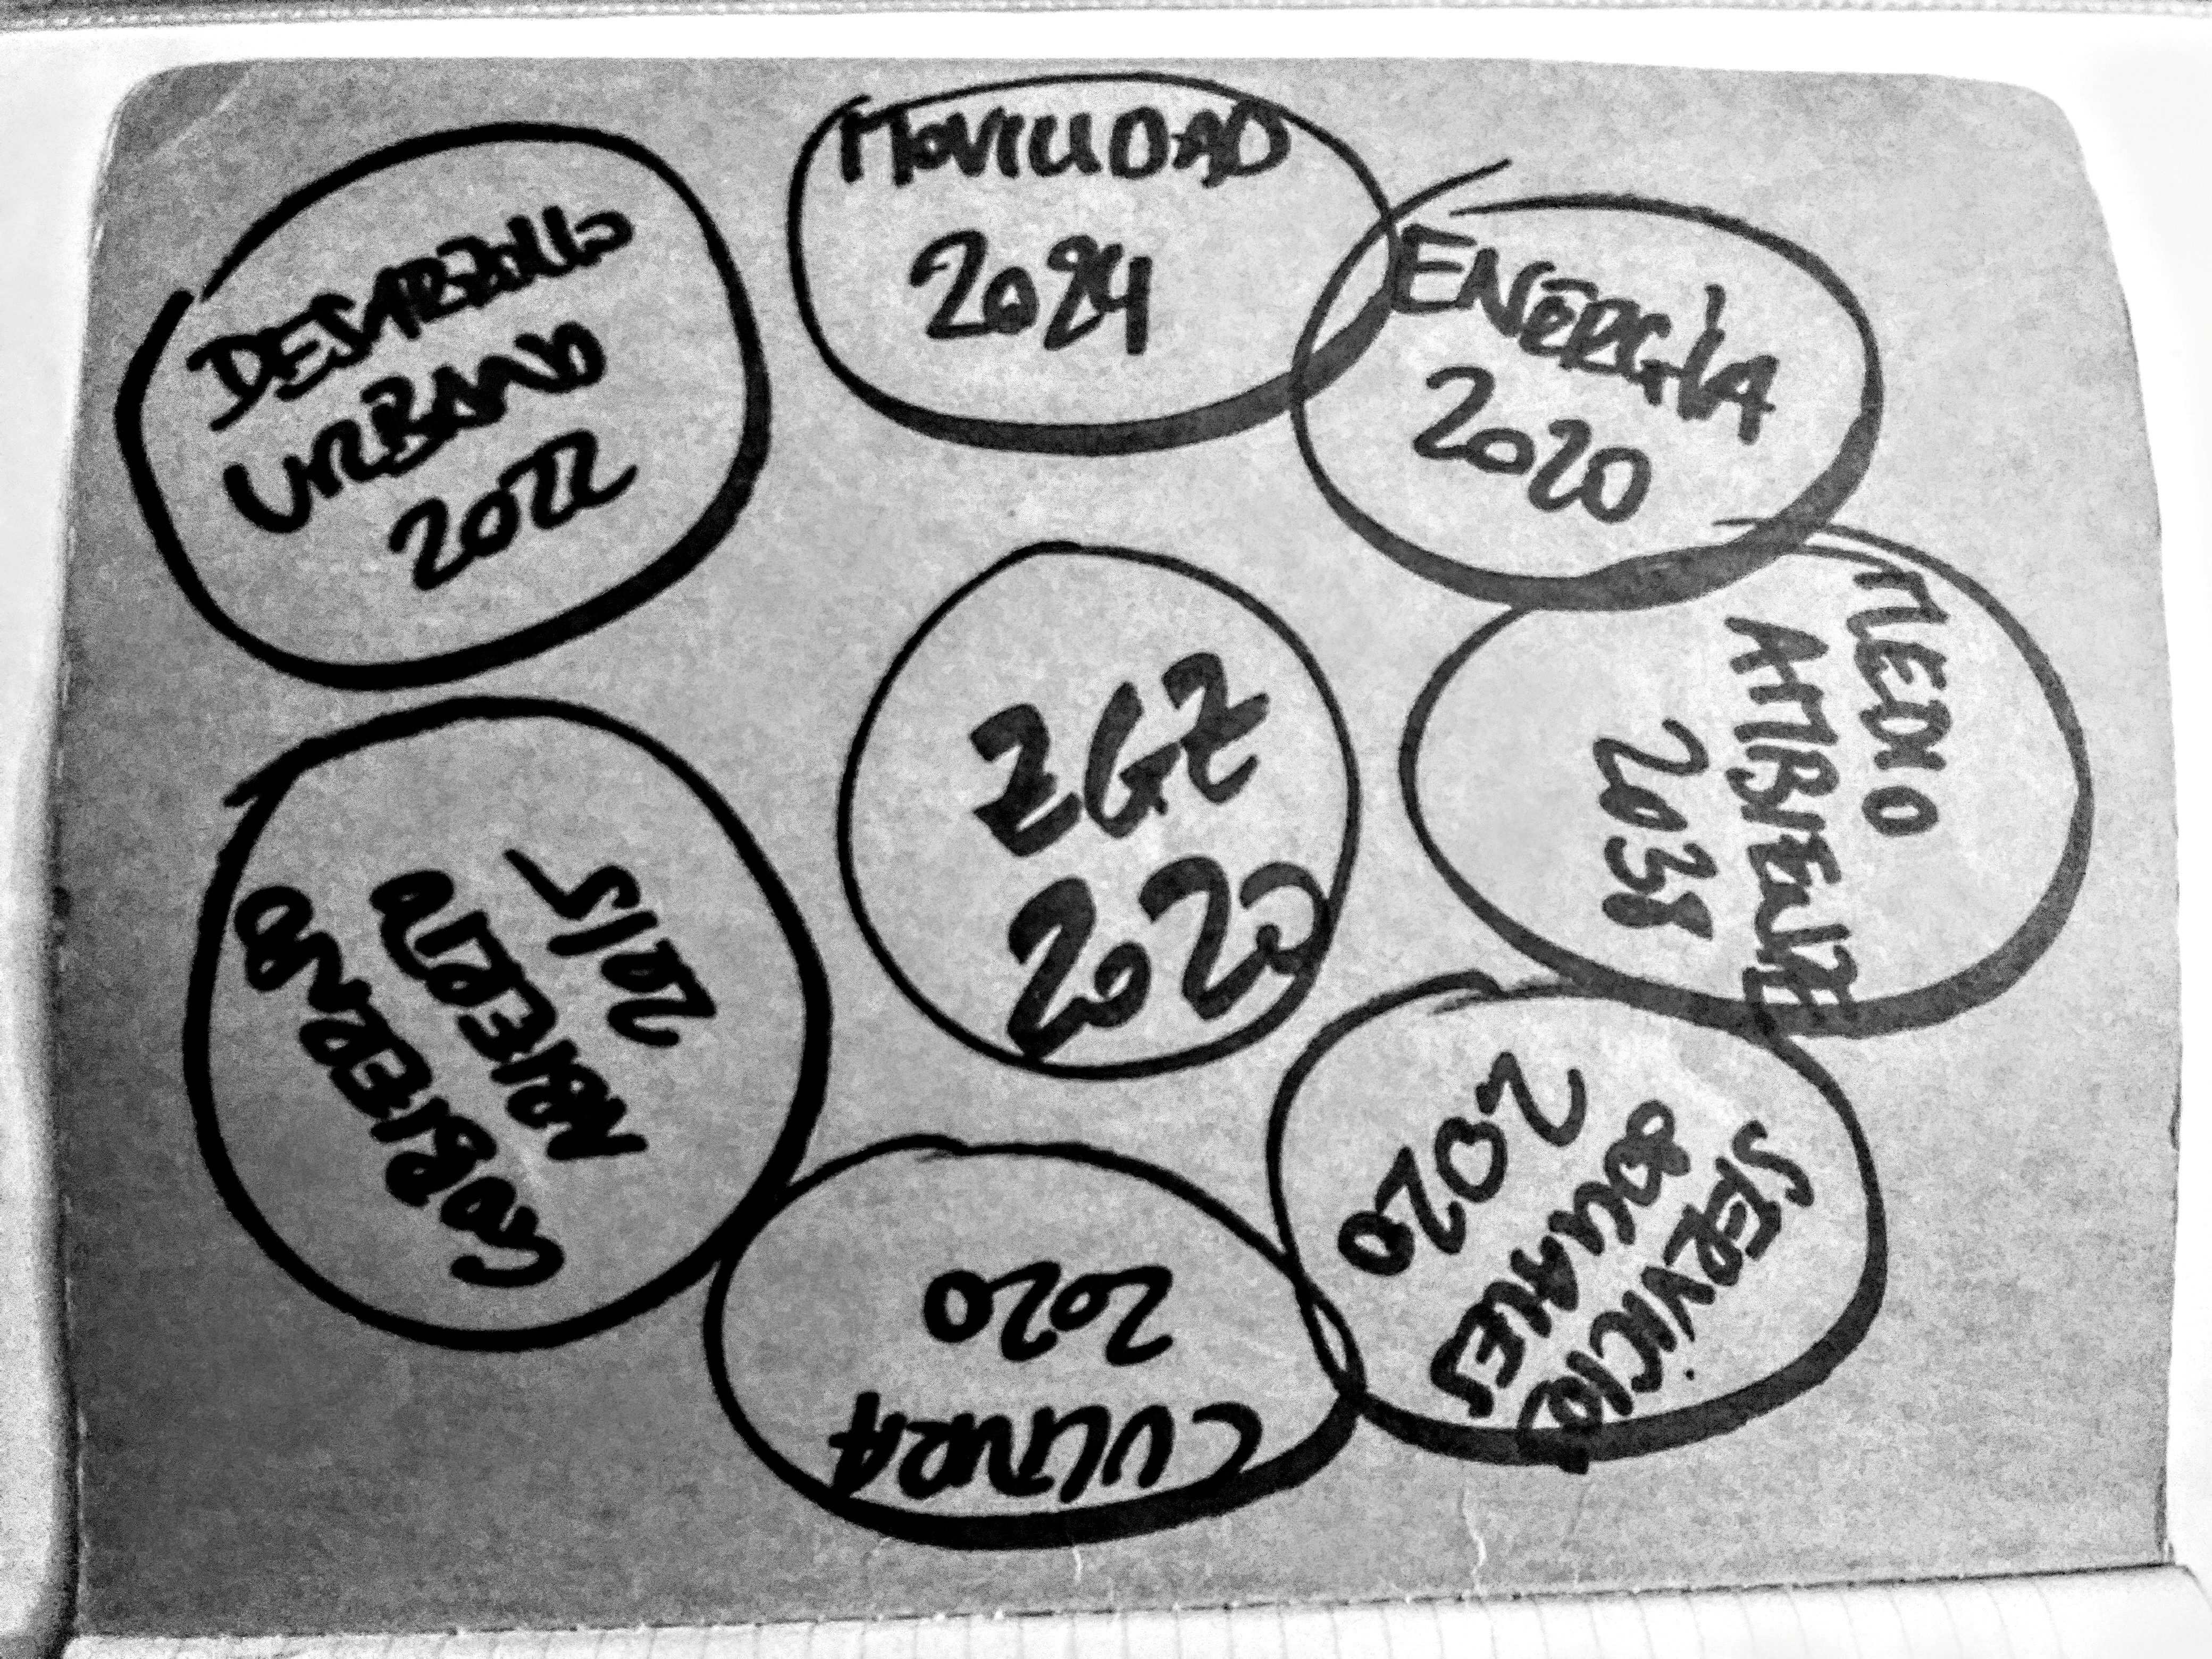 DESARROLLO
URBANO
2022
MOVILIDAD
2024
ENERGÍA
2020
MEDIO
AMBIENTE
2038
SERVICIOS
SOCIALES
2020
CULTURA
2020
GOBIERNO
ABIERTO
2015
ZGZ
2020